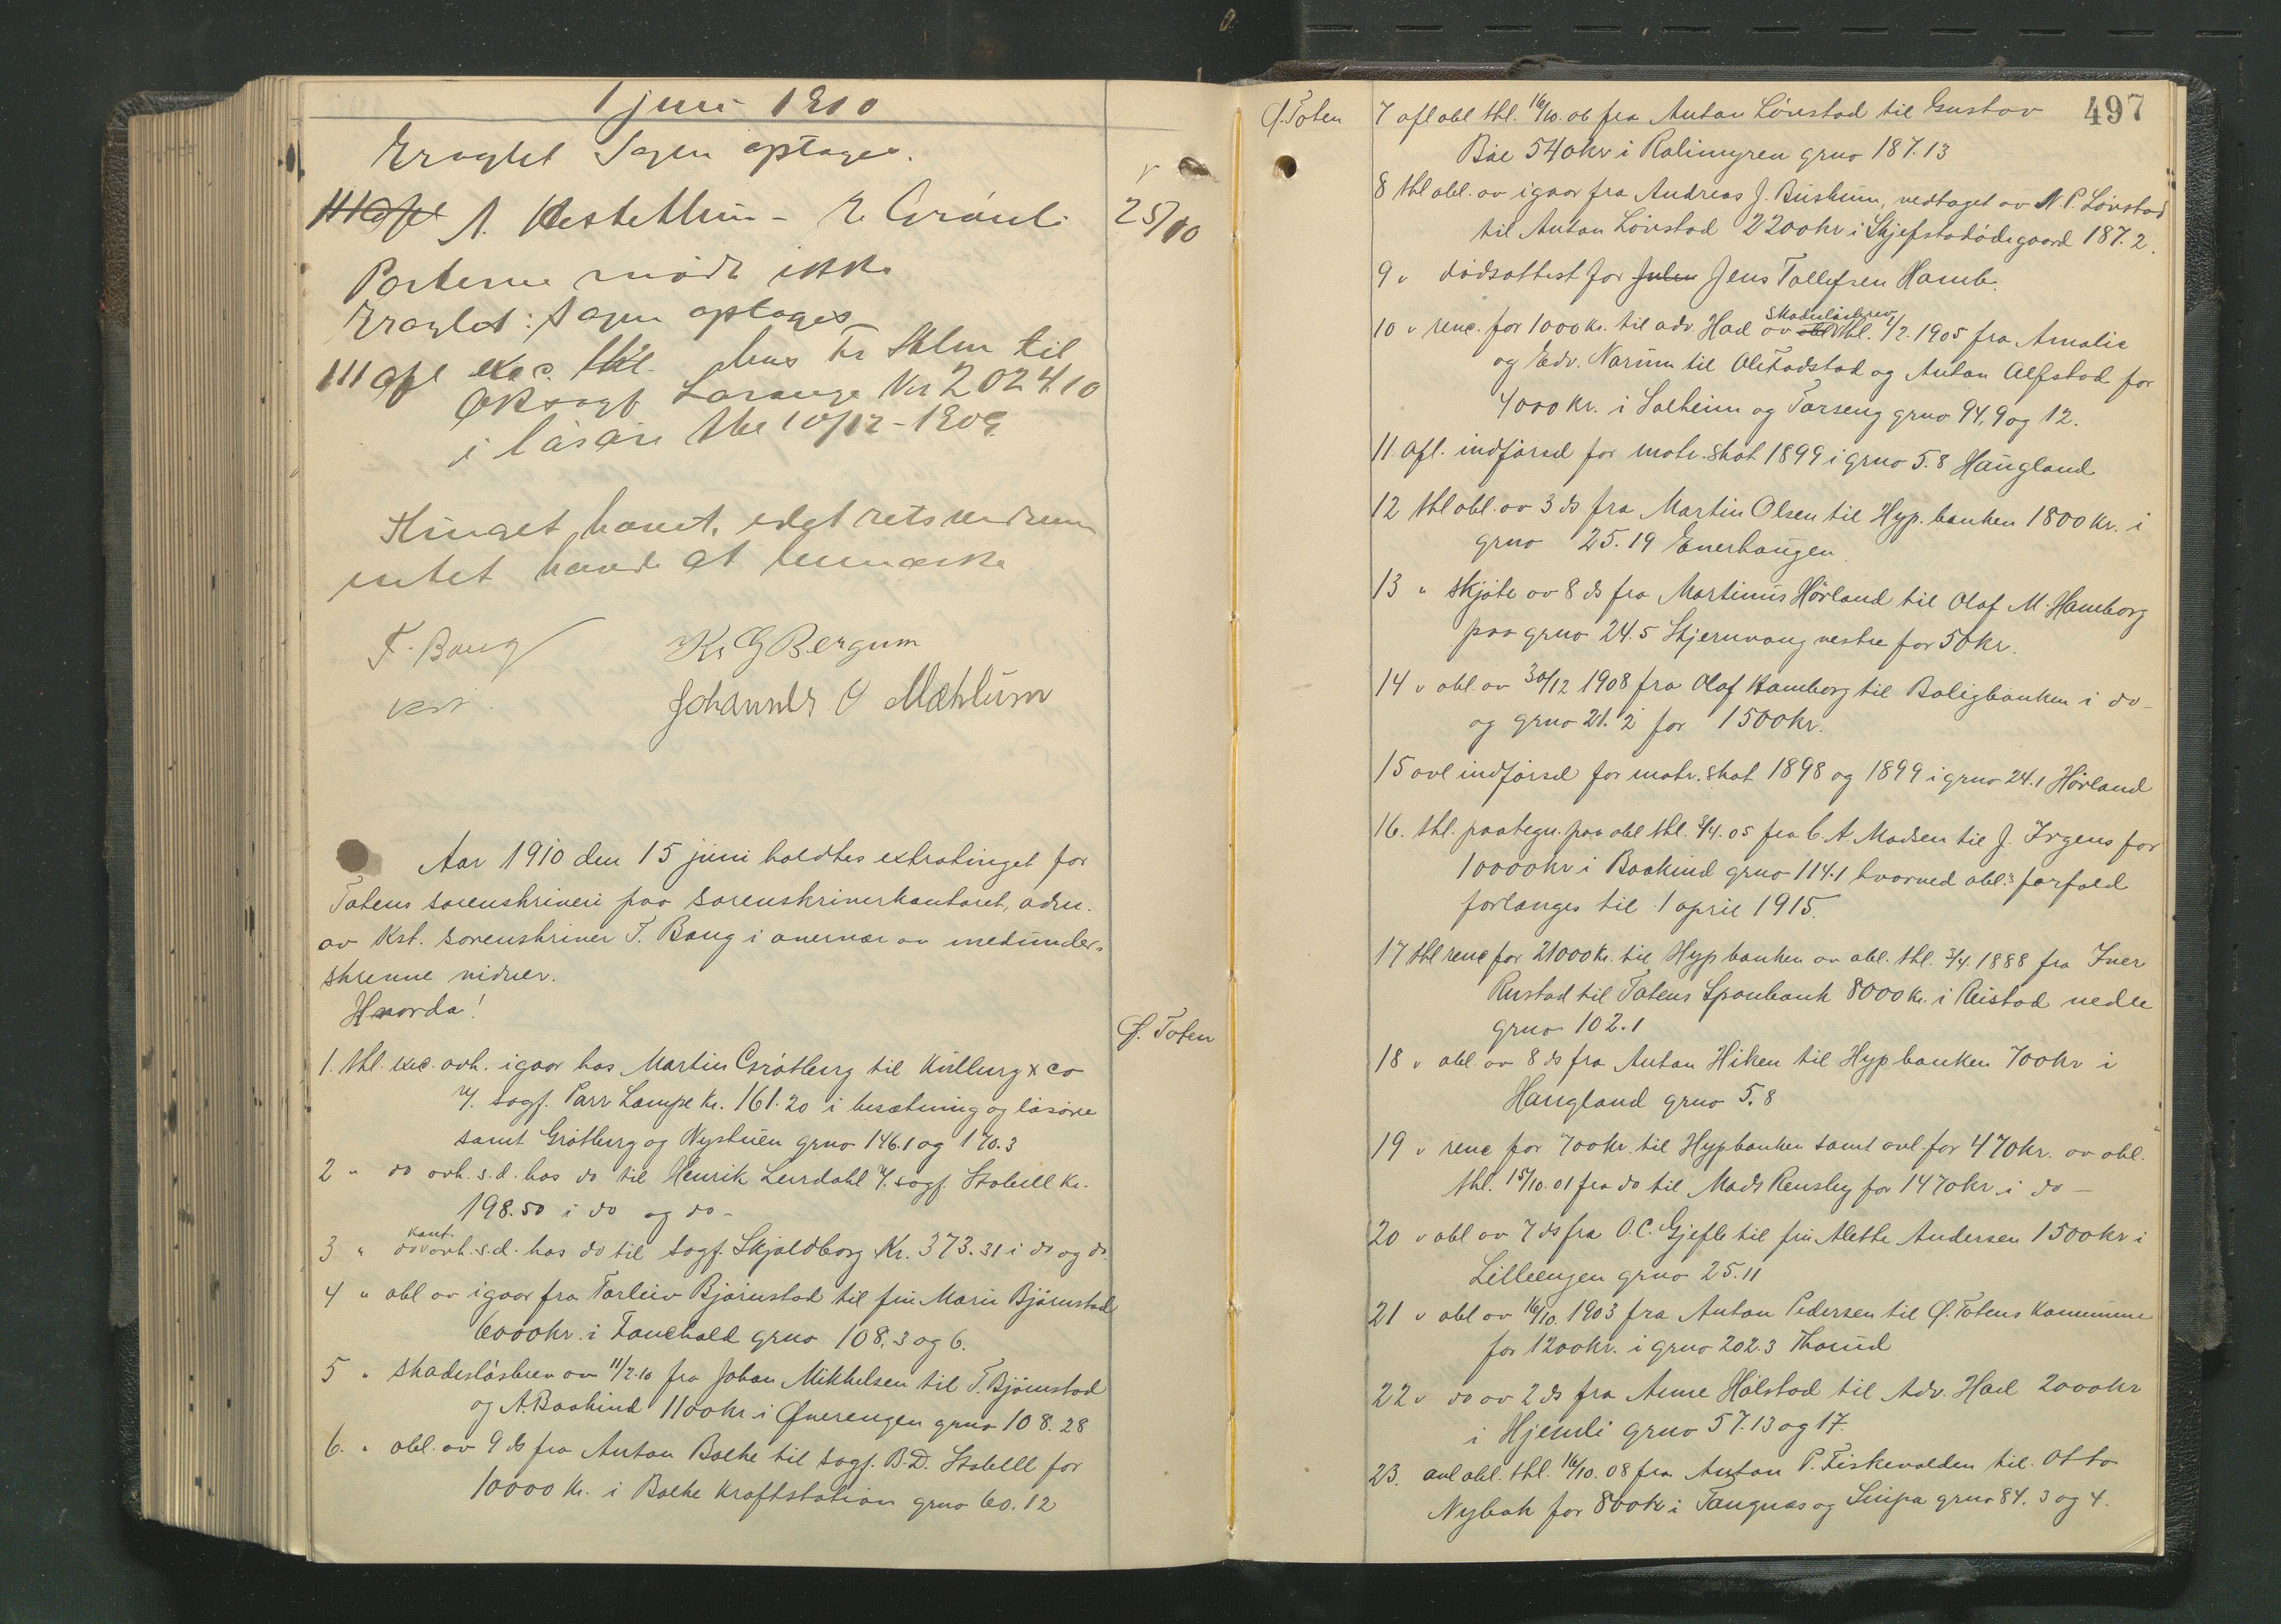 1 juni 1910
Eragtet Sagen optages.
A. Hestethun - E. Grönli
25/10
Parterne mödte ikke
Eragtet: Sagen optages
III afl exec. thl. hos Fr Holm til
Oksogf Larange Kr 2024.10
i lösöre thl 10/12-1909
Thinget hævet, idet retsvidnerne
intet havde at bemærke
F. Bang
kst.
K. G Bergum
Johannes O Mæhlum
Aar 1910 den 15 juni holdtes extratinget for
Totens sorenskriveri paa sorenskriverkontoret, adm.
av kst. sorenskriver F. Bang i overvær av medunder-
skrevne vidner.
Hvorda!
Ø. Toten
1. thl. exec. avh. igaar hos Martin Grötberg til Kullberg & co
v/. sagf. Parr Lampe Kr. 161.20 i besætning og lösöre
samt Grötberg og Nystuen grno 146.1 og 170.3
2 " do avh. s.d. hos do til Henrik Leirdahl v/. sagf. Stabell Kr.
198.50 i do og do -
kont.
3 " do avh. s.d. hos do til sagf. Skjoldborg Kr. 373.31 i do og do.
4 " obl av igaar fra Torleiv Björnstad til fru Marie Björnstad
6000kr. i Fauchald grno 108,3 og 6.
5 " skadeslösbrev av 11/2.10 fra Johan Mikkelsen til T. Björnstad
og A. Baakind 1100kr. i Øverengen grno 108.28
6. " obl. av 9 ds fra Anton Balke til sagf. B.D. Stabell for
10000 Kr. i Balke Kraftstation grno 60.12
497
Ø. Toten
7 afl obl thl. 16/10.06 fra Anton Lönstad til Gustav
Böe 540kr i Kolimyren grno 187.13
8 thl obl. av igaar fra Andreas J. Bushun, vedtaget av N. P. Lönstad
til Anton Lönstad 2200kr i Skjefstadödegaard 187.2.
9 v dödsattest for Jens Tollefsen Hamb.
Skadeslösbrev
10 v renc. for 1000 kr. til adv Hoel av thl. 1/2. 1905 fra Amalie
og Edv. Narum til Ole Fodstad og Anton Alfstad for
4000 kr. i Solheim og Torseng grno 94,9 og 12.
11. afl. indförsel for matr. skat 1899 i grno 5.8 Haugland
12 thl obl. av 3 ds fra Martin Olsen til Hyp. banken 1800 kr. i
grno 25.19 Enerhaugen
13 " skjöte av 8 ds fra Martinus Hörland til Olaf M. Hamborg
paa grno 24.5 Skjernvang vestre for 50kr.
14 v obl. av 30/12 1908 fra Olaf Hamborg til Boligbanken i do -
og grno 21.2 for 1500kr.
15 avl indförsel for matr. skat 1898 og 1899 i grno 24.1 Hörland
16. thl. paategn. paa obl thl. 3/4.05 fra C. A. Madsen til J. Irgens for
10000kr i Baakind grno 114.1 hvorved obl.s forfald
forlænges til 1 april 1915.
17 thl renc for 21000kr. til Hyp banken av obl. thl. 3/4. 1888 fra Iver
Rustad til Totens Sparebank 8000 kr. i Reistad nedre
grno 102.1
18 v obl. av 8 ds fra Anton Hiken til Hyp banken 700kr i
Haugland grno 5.8
19 v renc for 700kr. til Hypbanken samt avl for 470kr. av obl.
thl. 15/10.01 fra do til Mads Rensby for 1470kr i do -
20 v obl av 7 ds fra O. C. Gjefle til fru Alette Andersen 1500kr i
Lilleengen grno 25.11
21 v obl av 16/10. 1903 fra Anton Pedersen til Ø. Totens Kommune
for 1200kr. i grno 202.3 Thorud
22 v do av 2 ds fra Anne Hölstad til Adv. Hoel 2000kr
i Hjemli grno 57.13 og 17.
23. avl obl. thl. 16/10.08 fra Anton P. Fiskevolden til Otto
Nybak for 800kr i Tangnæs og Snipa grno 84.3 og 4.